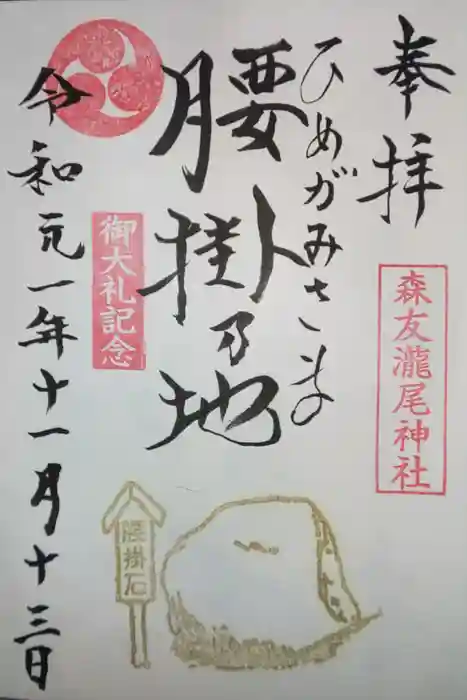 奉拝
森友瀧尾神社
ひめがみさまの
腰掛乃地
御大礼記念
令和元年十一月十三日
腰掛石